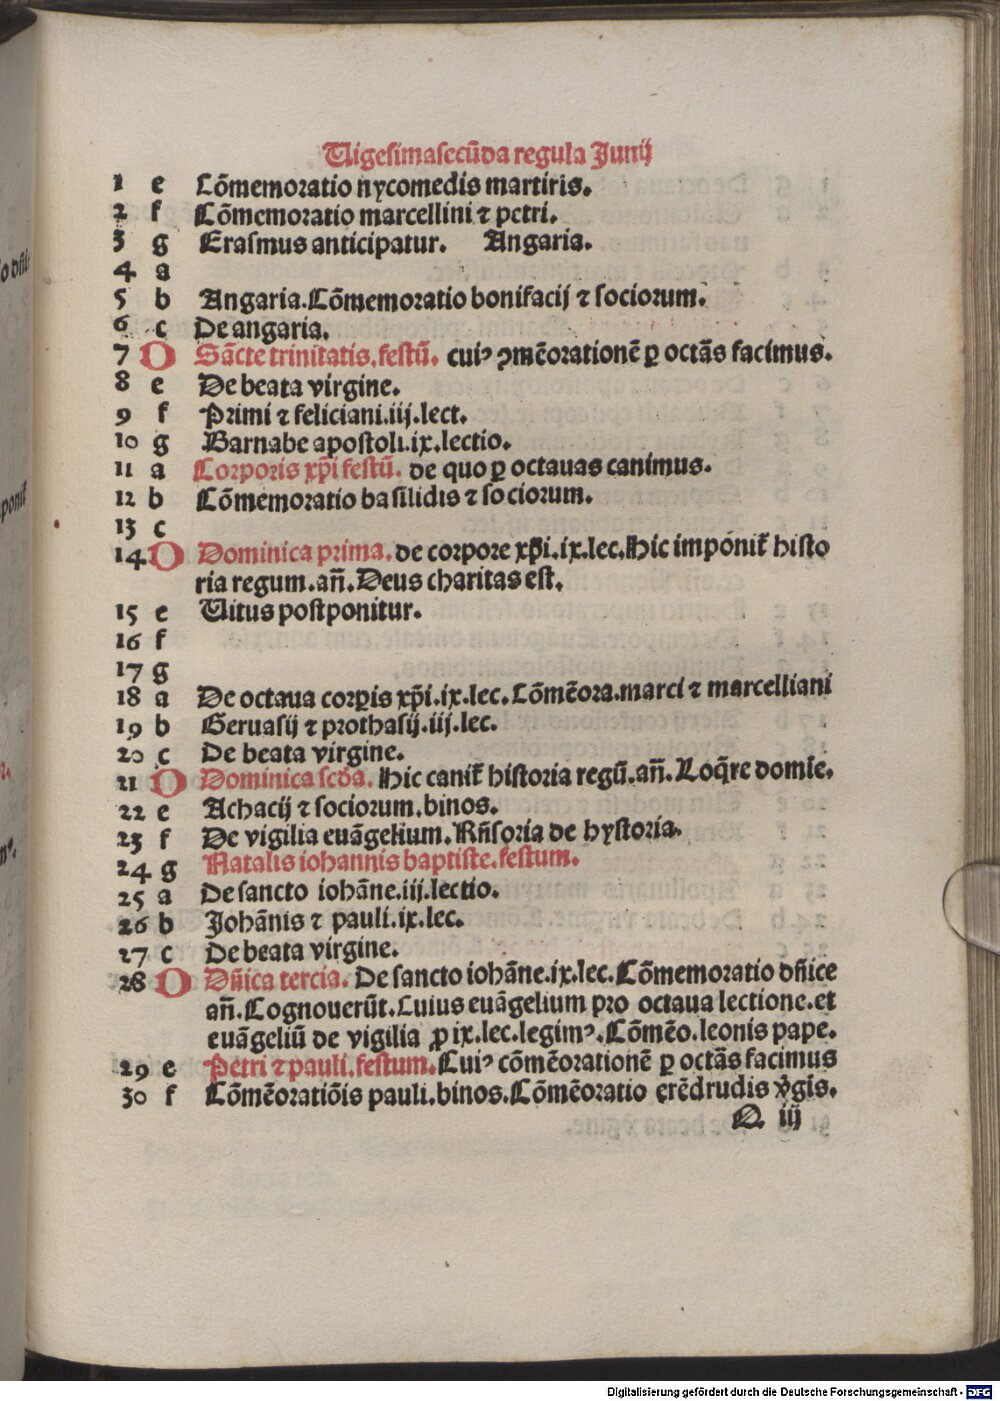 Uigesimasecũda regula Junij
1 e Cõmemoratio nycomedis martiris.
2 f Cõmemoratio marcellini ⁊ petri.
3 g Erasmus anticipatur. Angaria.
4 a
5 b Angaria. Cõmemoratio bonifacij ⁊ sociorum.
6 c De angaria.
7 D Sãcte trinitatis. festũ. cuiꝰ ꝯmẽorationẽ ꝑ octãs facimus.
8 e De beata virgine.
9 f Primi ⁊ feliciani. iij. lect.
10 g Barnabe apostoli. ix. lectio.
11 a Corporis xp̄i festũ. de quo ꝑ octauas canimus.
12 b Cõmemoratio basilidis ⁊ sociorum.
13 c
14 D Dominica prima. de corpore xp̄i. ix. lec. Hic impõnit᷑ histo
ria regum. añ. Deus charitas est.
15 e Uitus postponitur.
16 f
17 g
18 a De octaua corꝑis xp̄i. ix. lec. Cõmẽora. marci ⁊ marcelliani
19 b Geruasij ⁊ prothasij. iij. lec.
20 c De beata virgine.
21 D Dominica scđa. Hic canit᷑ historia regũ. añ. Loq̃re domĩe.
22 e Achacij ⁊ sociorum. binos.
23 f De vigilia euãgelium. Rñsoria de hystoria.
24 g Natalis iohannis baptiste. festum.
25 a De sancto iohãne. iij. lectio.
26 b Johãnis ⁊ pauli. ix. lec.
27 c De beata virgine.
28 D Dñica tercia. De sancto iohãne. ix. lec. Cõmemoratio dñice
añ. Cognouerũt. Cuius euãgelium pro octaua lectione. et
euãgeliũ de vigilia ꝓ ix. lec. legimꝰ. Cõmẽo. leonis pape.
29 e Petri ⁊ pauli. festum. Cuiꝰ cõmẽorationẽ ꝑ octãs facimus
30 f Cõmẽoratiõis pauli. binos. Cõmẽoratio erẽdrudis v̾gis.
Q iij
Digitalisierung gefördert durch die Deutsche Forschungsgemeinschaft - DFG